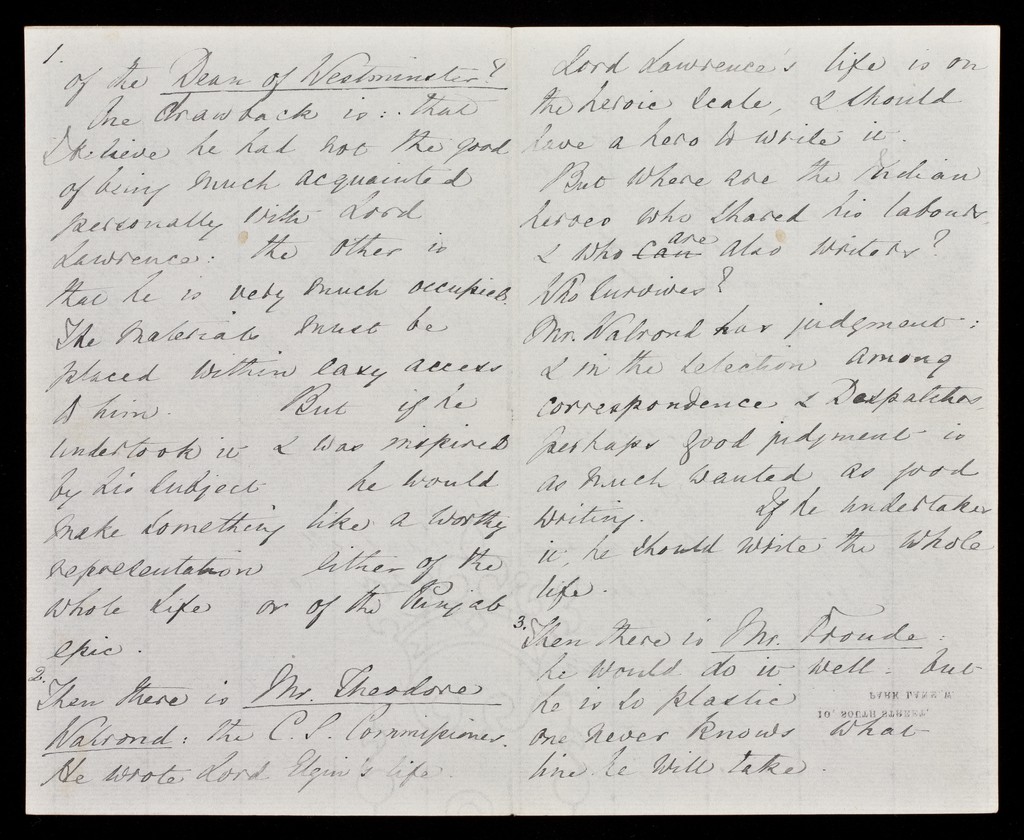 1.
of the Dean of Westminster?
One drawback is: that
I believe he had not the good
of being much acquainted
personally with Lord
Lawrence: the other is
that he is very much occupied.
The materials must be
placed within easy access
to him. But if he
undertook it & was inspired
by his subject he would
make something like a worthy
representation either of the
whole life or of the Punjab
epic.
2.
Then there is Mr. Theodore
Walrond: the C. S. Commissioner.
He wrote Lord Elgin's life.
Lord Lawrence's life is on
the heroic scale, & should
have a hero to write it.
But where are the Indian
heroes who shared his labours,
& who can are also writers?
Who survives?
Mr. Walrond has judgment:
& in the selection among
correspondence & Despatches,
perhaps good judgment is
as much wanted as good
writing. If he undertakes
it, he should write the whole
life.
3. Then there is Mr. Froude:
he would do it well. but
he is so plastic
one never knows what
line he will take.
10, SOUTH STREET,
PARK LANE. W.